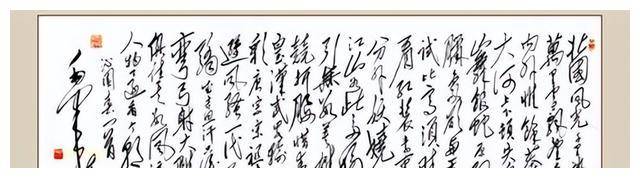 北國風光千里
萬里雪飄望
内外惟餘莽
大河上下頓失
山舞銀蛇原
欲與天公
試比高須晴
看紅裝素
分外妖嬈
江山如此多嬌
引無數英雄
競折腰惜秦
皇漢武略輸
唐宗宋祖
遜風騷一代
成吉思汗
彎弓射大雕
俱往矣數風流
人物還看今朝
沁園春一首
毛澤東